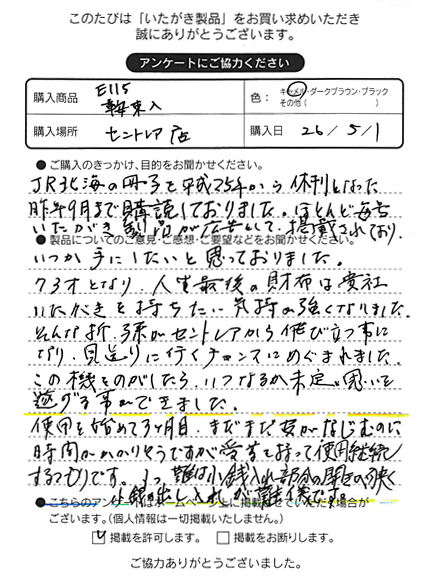 このたびは「いたがき製品」をお買い求めいただき
誠にありがとうございます。
アンケートにご協力ください
購入商品 E115
鞍束入
色： キャメル・ダークブラウン・ブラック
その他（ ）
購入場所 セントレア店
購入日 26/5/1
● ご購入のきっかけ、目的をお聞かせください。
JR北海の冊子を平成25年から休刊となった
昨年9月まで購読しておりました。ほとんど毎号
いたがき製品が広告として掲載されており、
● 製品についてのご意見・ご感想・ご要望などをお聞かせください。
いつか手にしたいと思っておりました。
73才となり、人生最後の財布は貴社
いたがきを持ちたい気持が強くなりました。
そんな折、孫がセントレアから飛び立つ事に
なり、見送りに行くチャンスにめぐまれました。
この機をのがしたら、いつなるか未定と思い
遂げる事ができました。
使用を始めて3ヶ月目、まだまだ なじむのに
時間がかかりそうですが 持って使用継続
するつもりです。1つ、難は小銭入れ部分の開きが狭く
出し入れが難儀です。
● こちらのアンケートはホームページ上に掲載させていただく場合が
ございます。（個人情報は一切掲載いたしません。）
掲載を許可します。 掲載をお断りします。
ご協力ありがとうございました。